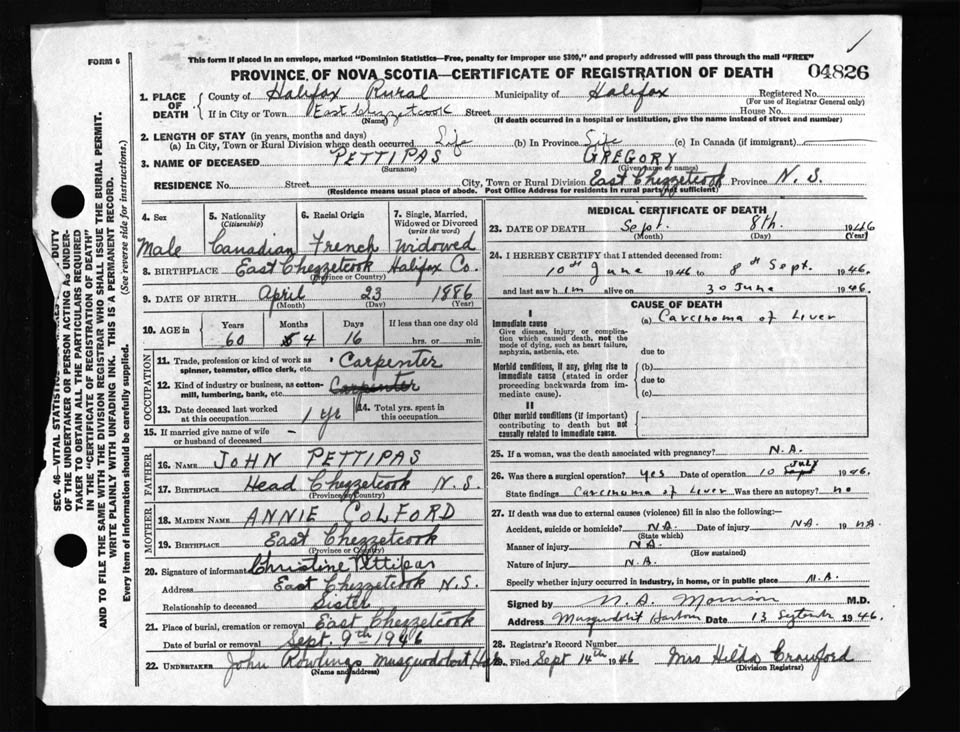 FORM 6
This form if placed in an envelope, marked "Dominion Statistics—Free, penalty for improper use $300," and properly addressed will pass through the mail "FREE"
PROVINCE OF NOVA SCOTIA—CERTIFICATE OF REGISTRATION OF DEATH 04826
1. PLACE OF DEATH
County of Halifax Rural Municipality of Halifax Registered No.
(For use of Registrar General only)
If in City or Town East Chezzetcook Street House No.
(Name) (If death occurred in a hospital or institution, give the name instead of street and number)
2. LENGTH OF STAY (in years, months and days)
(a) In City, Town or Rural Division where death occurred Life (b) In Province Life (c) In Canada (if immigrant)
3. NAME OF DECEASED PETTIPAS GREGORY
(Surname) (Given name or names)
RESIDENCE No. Street City, Town or Rural Division East Chezzetcook Province N. S.
(Residence means usual place of abode. Post Office Address for residents in rural parts not sufficient)
4. Sex 5. Nationality (Citizenship) 6. Racial Origin 7. Single, Married, Widowed or Divorced (write the word)
Male Canadian French Widowed
8. BIRTHPLACE East Chezzetcook Halifax Co.
(Province or Country)
9. DATE OF BIRTH April 23 1886
(Month) (Day) (Year)
10. AGE in Years Months Days If less than one day old
60 4 16 hrs. or min.
OCCUPATION
11. Trade, profession or kind of work as spinner, teamster, office clerk, etc. Carpenter
12. Kind of industry or business, as cotton-mill, lumbering, bank, etc. Carpenter
13. Date deceased last worked at this occupation 1 yr 14. Total yrs. spent in this occupation
15. If married give name of wife or husband of deceased –
FATHER
16. NAME JOHN PETTIPAS
17. BIRTHPLACE Head Chezzetcook N.S.
(Province or Country)
MOTHER
18. MAIDEN NAME ANNIE COLFORD
19. BIRTHPLACE East Chezzetcook
(Province or Country)
20. Signature of informant Christine Pettipas
Address East Chezzetcook N.S.
Relationship to deceased Sister
21. Place of burial, cremation or removal East Chezzetcook
Date of burial or removal Sept. 9th 1946
22. UNDERTAKER John Rowlings Musquodoboit Har.
(Name and address)
MEDICAL CERTIFICATE OF DEATH
23. DATE OF DEATH Sept. 8th. 1946
(Month) (Day) (Year)
24. I HEREBY CERTIFY that I attended deceased from:
10th June 1946 to 8th Sept. 1946.
and last saw him alive on 30 June 1946.
CAUSE OF DEATH
I
Immediate cause (a) Carcinoma of Liver
Give disease, injury or complication which caused death, not the mode of dying, such as heart failure, asphyxia, asthenia, etc.
due to
Morbid conditions, if any, giving rise to immediate cause (stated in order proceeding backwards from immediate cause).
(b)
due to
(c)
II
Other morbid conditions (if important) contributing to death but not causally related to immediate cause.
25. If a woman, was the death associated with pregnancy? N.A.
26. Was there a surgical operation? yes Date of operation 10 Sept July 1946.
State findings Carcinoma of Liver Was there an autopsy? no
27. If death was due to external causes (violence) fill in also the following:—
Accident, suicide or homicide? N.A. Date of injury N.A. 19 NA
(State which)
Manner of injury N.A.
(How sustained)
Nature of injury N.A.
Specify whether injury occurred in industry, in home, or in public place N.A.
Signed by N. A. Morrison M.D.
Address Musquodoboit Harbour Date 13 September 1946.
28. Registrar's Record Number
29. Filed Sept 14th 1946 Mrs Hilda Crawford
(Division Registrar)
SEC. 46—VITAL STATISTICS DUTY
OF THE UNDERTAKER OR PERSON ACTING AS UNDER-
TAKER TO OBTAIN ALL THE PARTICULARS REQUIRED
IN THE "CERTIFICATE OF REGISTRATION OF DEATH"
AND TO FILE THE SAME WITH THE DIVISION REGISTRAR WHO SHALL ISSUE THE BURIAL PERMIT.
WRITE PLAINLY WITH UNFADING INK. THIS IS A PERMANENT RECORD.
Every item of information should be carefully supplied. (See reverse side for instructions.)